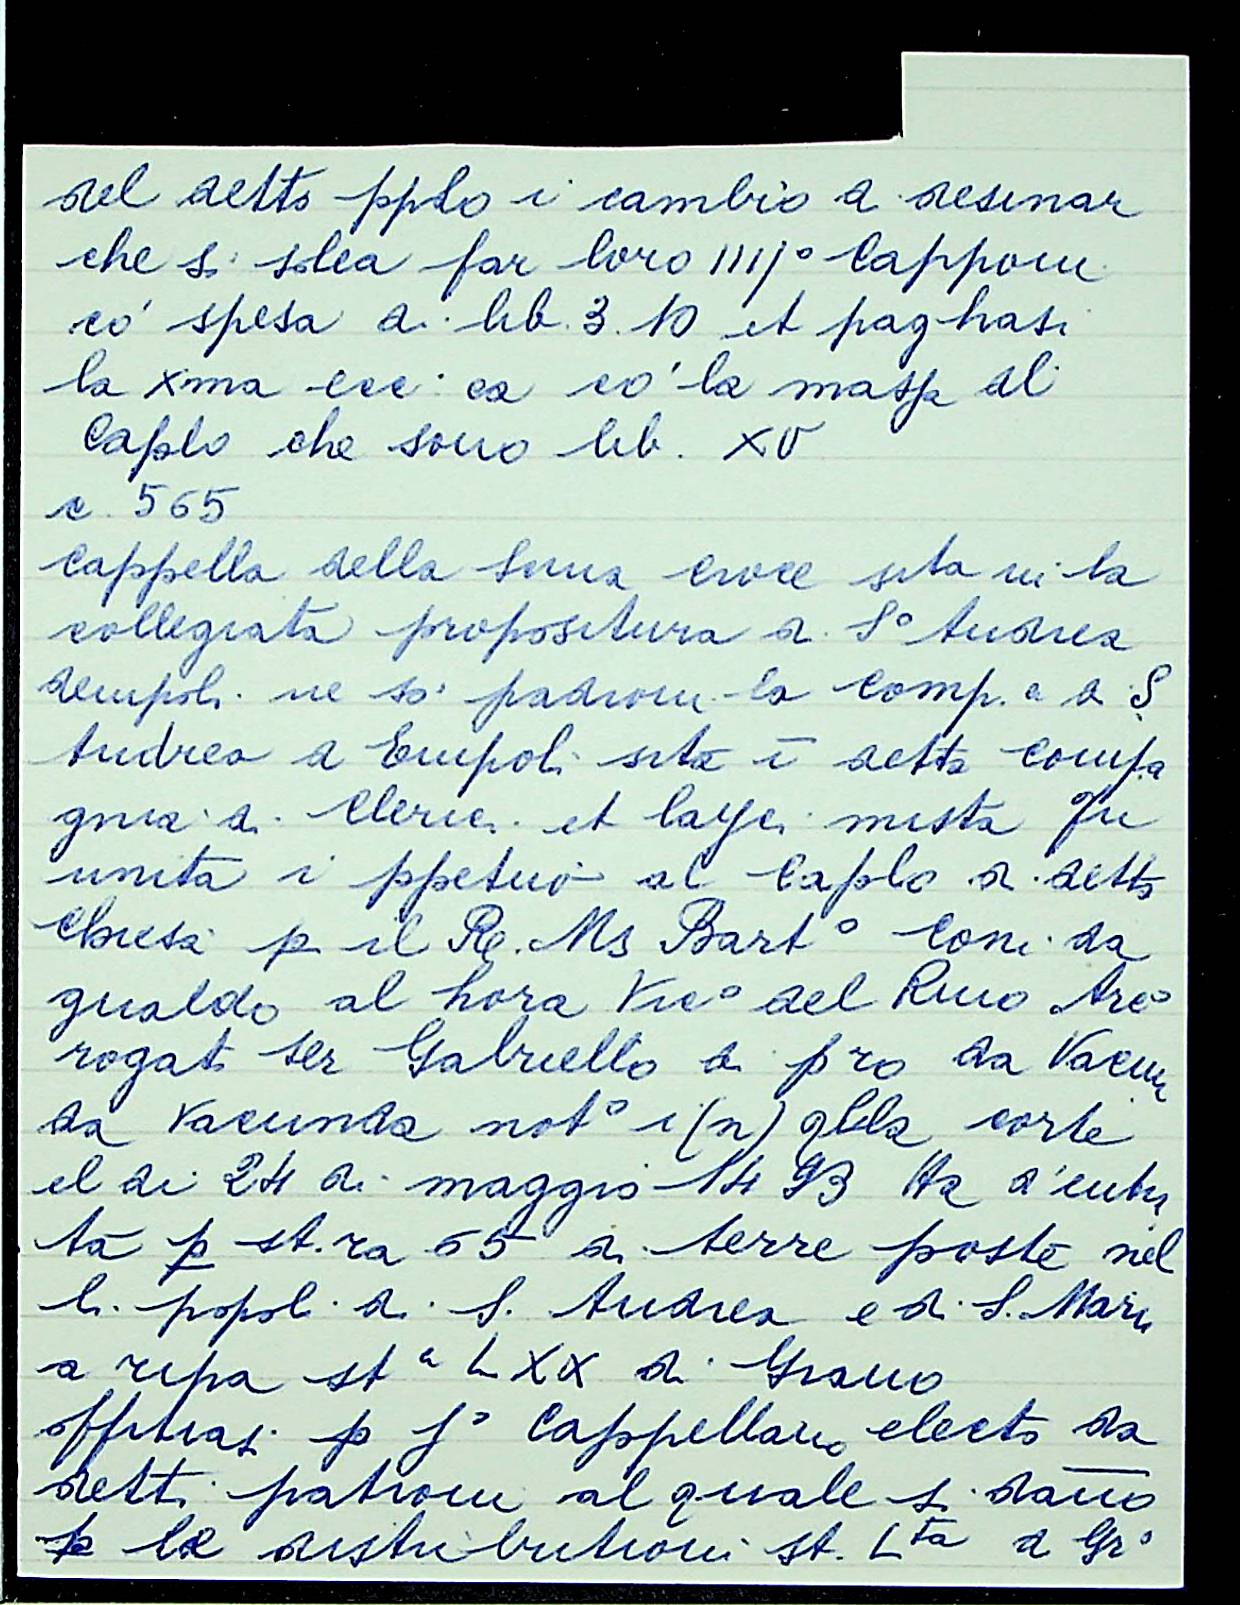 del detto ppto i cambio d desinar
che si solea far loro IIIJ° Capponi
co' spesa di lib. 3. 10 et paghasi
la xma ecc: ca co' la massa al
Caplo che sono lib. XV
c. 565
Cappella della Smna Croce sita ni la
collegiata propositura d. S° Andrea
dempoli. ne so' padroni la comp.a d S.
Andrea d Empoli sita ī detta compa
gnia di Clerici et layci mista fu
unita i ppetuo al Caplo di detta
Chiesa p il Re. Ms Bart° Coni da
gualdo al hora Vic° del Rmo Arc°
rogat. ser Gabriello di pro da Vacun
da Vacunda not° i(n) qlla corte
el di 24 di maggio 1493 Ha d'entra
ta p st.ra 65 di terre poste nel
li popoli di S. Andrea e di S. Mari
a ripa st a LXX di Grano
offitiasi p J° Cappellano electo da
detti patroni al quale si dano
p le distributioni st. L ta d Gr°